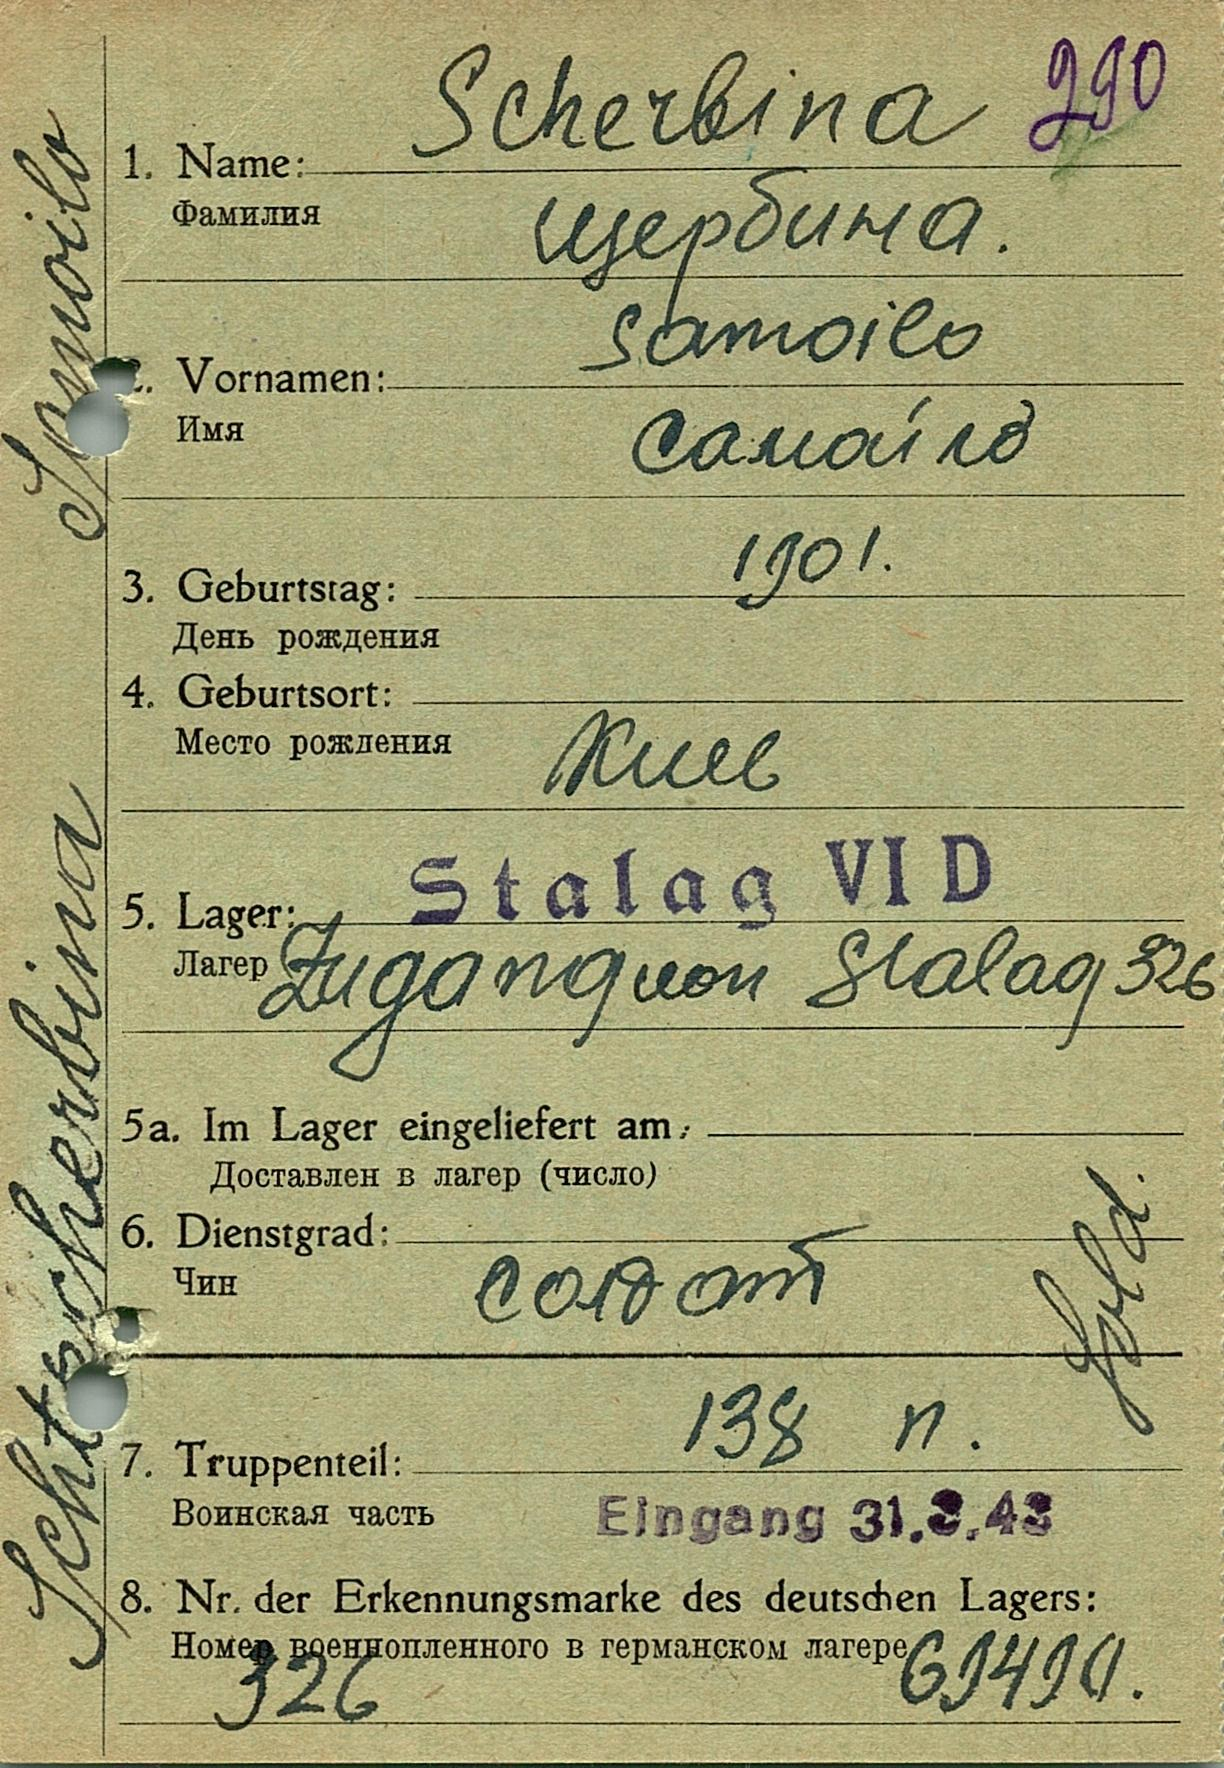 290
Scherbina
1. Name:
Фамилия
Щербина.
Samoilo
2. Vornamen:
Имя
Самойло
1901.
3. Geburtstag:
День рождения
4. Geburtsort:
Место рождения
Киев
Stalag VI D
5. Lager:
Лагер
Zugang von Stalag 326
5a. Im Lager eingeliefert am:
Доставлен в лагер (число)
6. Dienstgrad:
Чин
солдат
Sold.
138 п.
7. Truppenteil:
Воинская часть
Eingang 31.3.43
8. Nr. der Erkennungsmarke des deutschen Lagers:
Номер военнопленного в германском лагере
326
Schtscherbina Samoilo